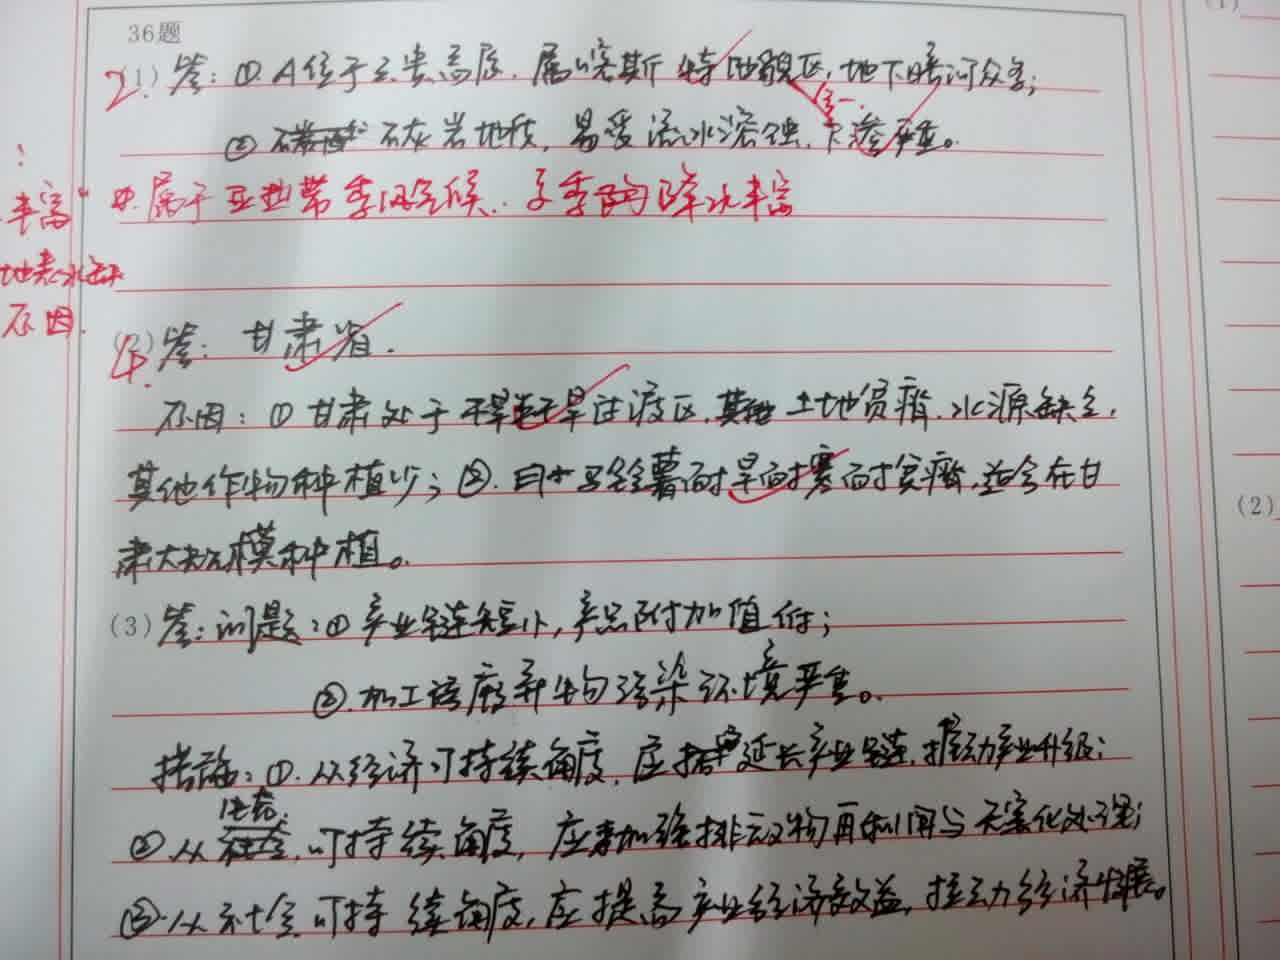 36题
2
(1) 答: ①.A位于云贵高原.属喀斯特地貌区,地下暗河众多;
②石灰岩地质,易受流水溶蚀,下渗严重。
丰富" 属于亚热带季风气候.夏季降水丰富
地表水缺
原因.
4.
(2)答: 甘肃省.
原因: ①甘肃处于干旱半干旱过渡区,土地贫瘠.水源缺乏,
其他作物种植少;②.马铃薯耐旱耐寒耐贫瘠,适合在甘
肃大规模种植。
(3)答:问题:①产业链短小,产品附加值低;
②.加工废弃物污染环境严重。
措施:①.从经济可持续角度,应延长产业链,推动产业升级;
②从生态可持续角度,应加强排放物再利用与无害化处理;
③.从社会可持续角度,应提高产业经济效益,拉动经济发展。
(1)
(2)